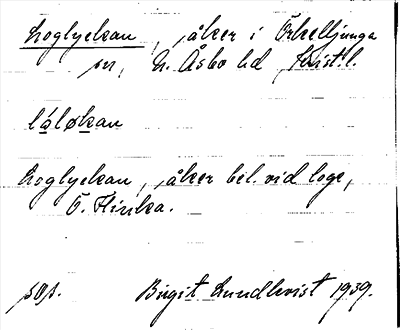 Loglyckan, åker i Örkelljunga
sn, N. Åsbo hd Krist. l.
låløkan
Loglyckan, åker bel. vid loge,
Ö. Flinka.
sos. Birgit Lundkvist 1939.